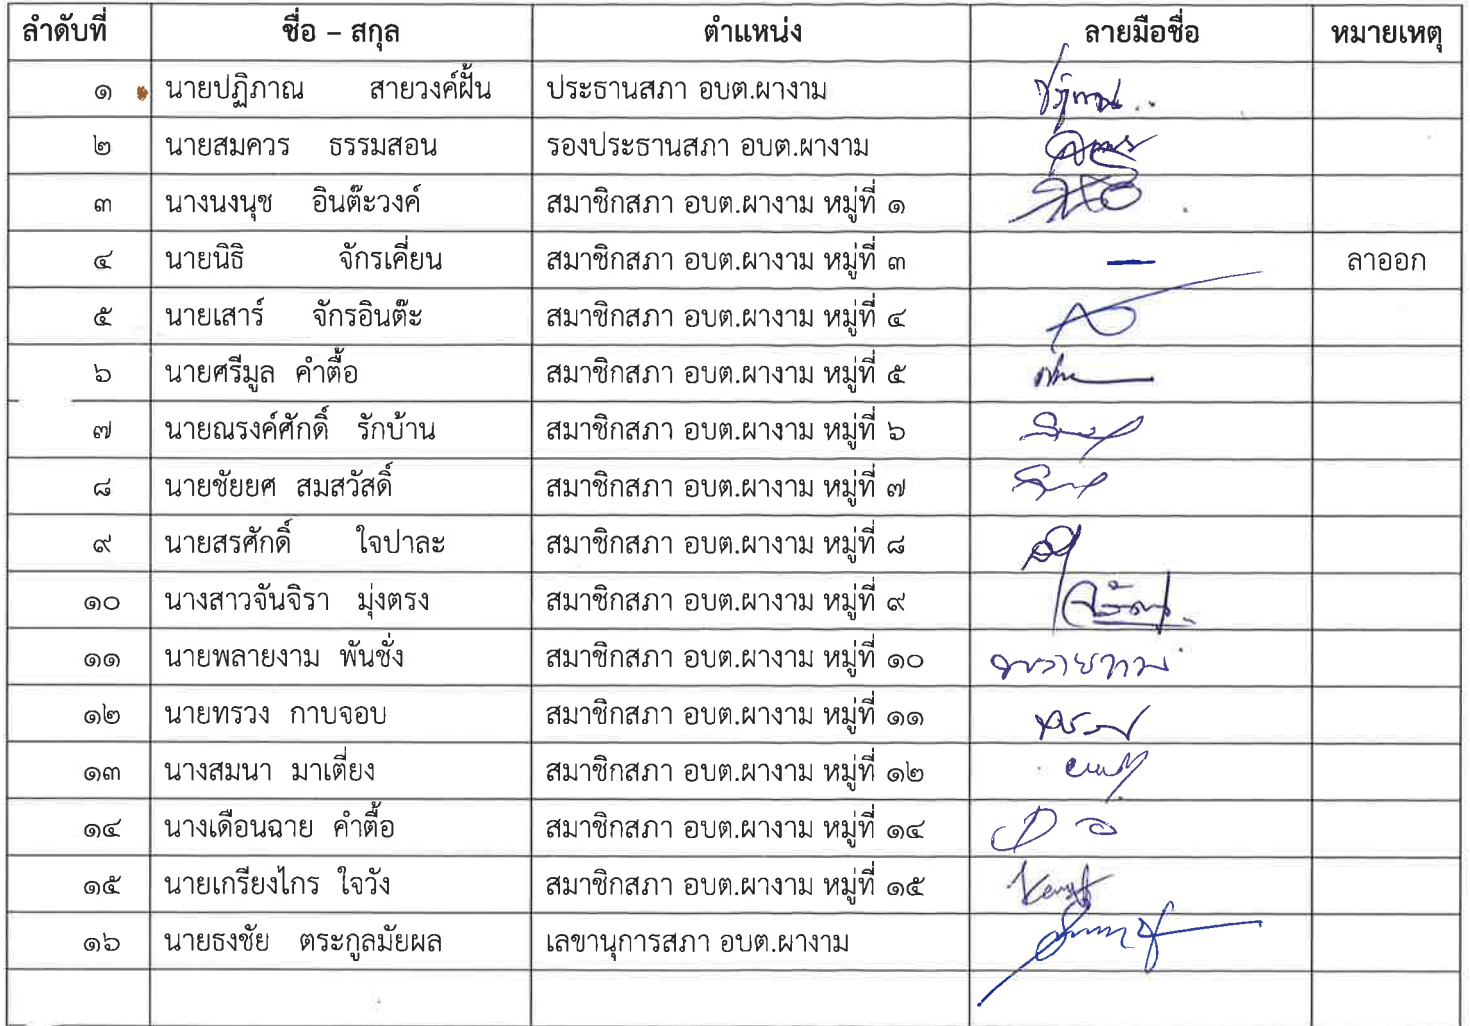 ลำดับที่ ชื่อ – สกุล ตำแหน่ง ลายมือชื่อ หมายเหตุ
๑ นายปฏิภาณ สายวงค์ฝั้น ประธานสภา อบต.ผางาม
๒ นายสมควร ธรรมสอน รองประธานสภา อบต.ผางาม
๓ นางนงนุช อินต๊ะวงค์ สมาชิกสภา อบต.ผางาม หมู่ที่ ๑
๔ นายนิธิ จักรเคี่ยน สมาชิกสภา อบต.ผางาม หมู่ที่ ๓ – ลาออก
๕ นายเสาร์ จักรอินต๊ะ สมาชิกสภา อบต.ผางาม หมู่ที่ ๔
๖ นายศรีมูล คำตื้อ สมาชิกสภา อบต.ผางาม หมู่ที่ ๕
๗ นายณรงค์ศักดิ์ รักบ้าน สมาชิกสภา อบต.ผางาม หมู่ที่ ๖
๘ นายชัยยศ สมสวัสดิ์ สมาชิกสภา อบต.ผางาม หมู่ที่ ๗
๙ นายสรศักดิ์ ใจปาละ สมาชิกสภา อบต.ผางาม หมู่ที่ ๘
๑๐ นางสาวจันจิรา มุ่งตรง สมาชิกสภา อบต.ผางาม หมู่ที่ ๙
๑๑ นายพลายงาม พันชั่ง สมาชิกสภา อบต.ผางาม หมู่ที่ ๑๐ พลายงาม
๑๒ นายทรวง กาบจอบ สมาชิกสภา อบต.ผางาม หมู่ที่ ๑๑
๑๓ นางสมนา มาเตี่ยง สมาชิกสภา อบต.ผางาม หมู่ที่ ๑๒
๑๔ นางเดือนฉาย คำตื้อ สมาชิกสภา อบต.ผางาม หมู่ที่ ๑๔
๑๕ นายเกรียงไกร ใจวัง สมาชิกสภา อบต.ผางาม หมู่ที่ ๑๕
๑๖ นายธงชัย ตระกูลมัยผล เลขานุการสภา อบต.ผางาม